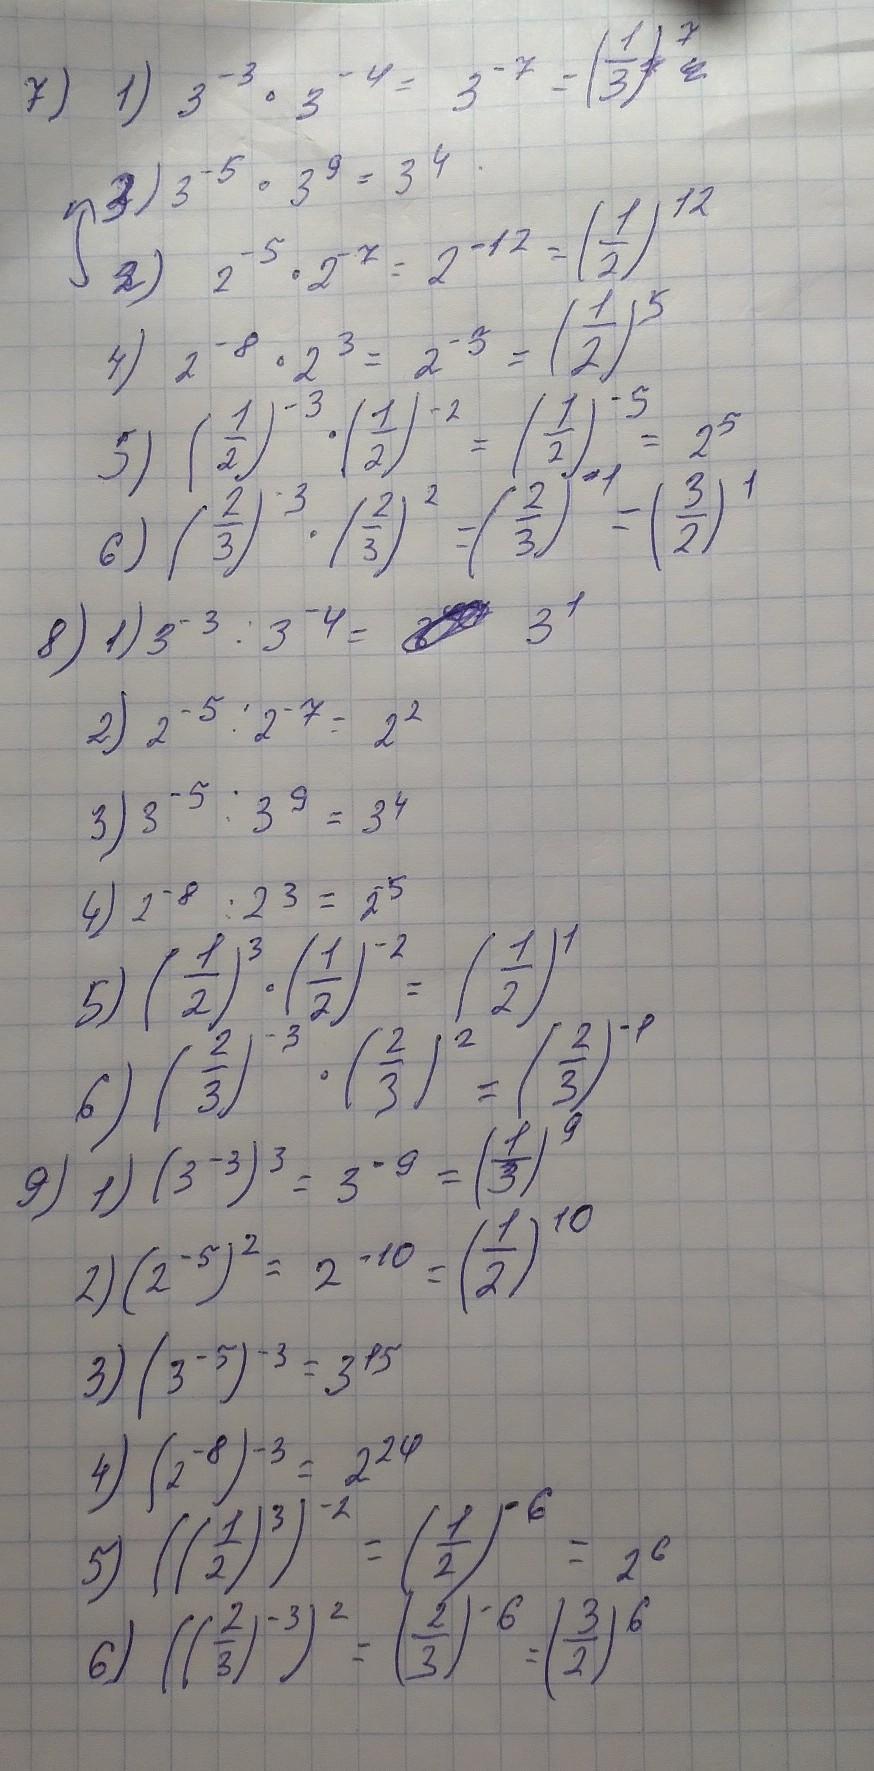 7) 1) 3^-3 · 3^-4 = 3^-7 = (1/3)^7
3) 3^-5 · 3^9 = 3^4
2) 2^-5 · 2^-7 = 2^-12 = (1/2)^12
4) 2^-8 · 2^3 = 2^-5 = (1/2)^5
5) (1/2)^-3 · (1/2)^-2 = (1/2)^-5 = 2^5
6) (2/3)^-3 · (2/3)^2 = (2/3)^-1 = (3/2)^1
8) 1) 3^-3 : 3^-4 = 3^1
2) 2^-5 : 2^-7 = 2^2
3) 3^-5 : 3^9 = 3^4
4) 2^-8 : 2^3 = 2^-5
5) (1/2)^3 · (1/2)^-2 = (1/2)^1
6) (2/3)^-3 · (2/3)^2 = (2/3)^-1
9) 1) (3^-3)^3 = 3^-9 = (1/3)^9
2) (2^-5)^2 = 2^-10 = (1/2)^10
3) (3^-5)^-3 = 3^15
4) (2^-8)^-3 = 2^24
5) ((1/2)^3)^-2 = (1/2)^-6 = 2^6
6) ((2/3)^-3)^2 = (2/3)^-6 = (3/2)^6